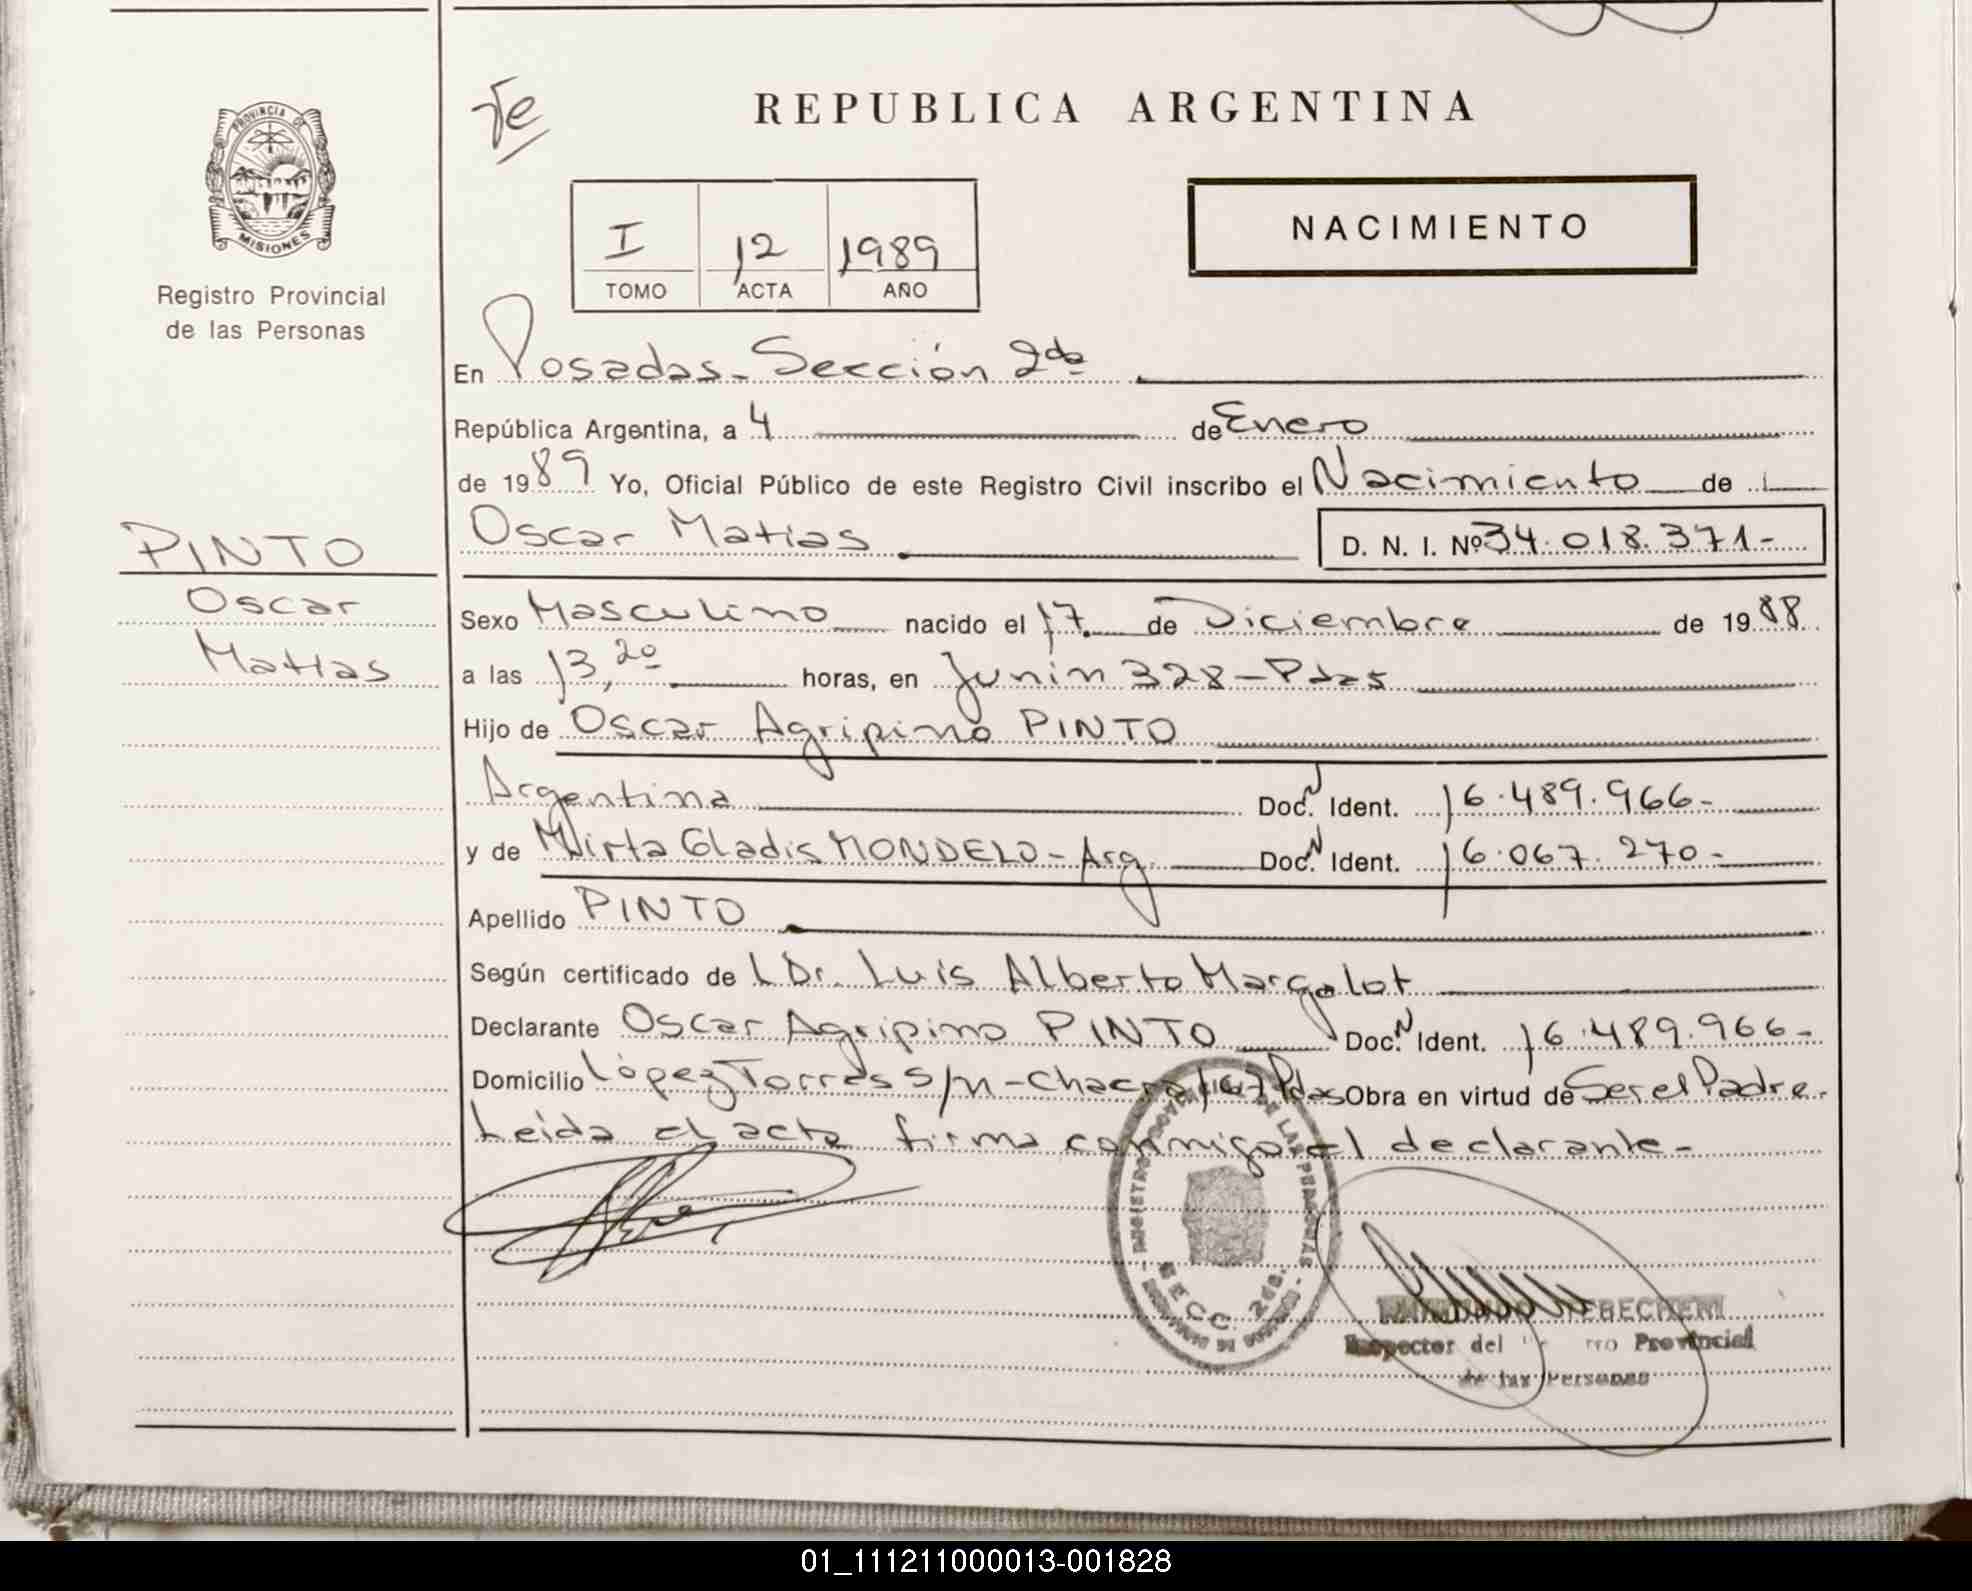 Te
REPUBLICA ARGENTINA
PROVINCIA DE
MISIONES
Registro Provincial
de las Personas
I 12 1989
TOMO ACTA AÑO
NACIMIENTO
En Posadas - Sección 2da
República Argentina, a 4 de Enero
de 1989 Yo, Oficial Público de este Registro Civil inscribo el Nacimiento de
Oscar Matias D. N. I. Nº 34.018.371-
PINTO
Oscar
Matias
Sexo Masculino nacido el 17 de Diciembre de 1988
a las 13,20 horas, en Junín 328 - Pdas
Hijo de Oscar Agripino PINTO
Argentina Doc. N Ident. 16.489.966-
y de Mirta Gladis MONDELO - Arg. Doc. N Ident. 16.067.270-
Apellido PINTO
Según certificado de l Dr. Luis Alberto Margalot
Declarante Oscar Agripino PINTO Doc. N Ident. 16.489.966-
Domicilio López Torres s/n - Chacra 167 Pdas Obra en virtud de Ser el Padre.
Leida el acta firma conmigo el declarante -
SECC. 2da.
Inspector del Provincial
de las Personas
01_111211000013-001828